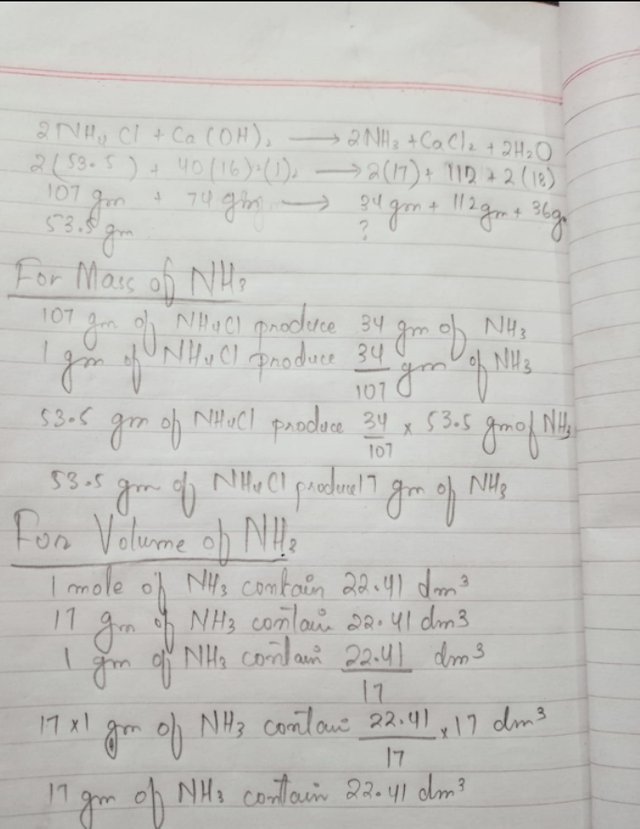 2NH4Cl + Ca(OH)2 ⟶ 2NH3 + CaCl2 + 2H2O
2(53.5) + 40(16)2(1)2 ⟶ 2(17) + 112 + 2(18)
107 gm + 74 gm ⟶ 34 gm + 112 gm + 36g
53.5 gm ?
For Mass of NH3
107 gm of NH4Cl produce 34 gm of NH3
1 gm of NH4Cl produce 34/107 gm of NH3
53.5 gm of NH4Cl produce 34/107 x 53.5 gm of NH3
53.5 gm of NH4Cl produce 17 gm of NH3
For Volume of NH3
1 mole of NH3 contain 22.41 dm3
17 gm of NH3 contain 22.41 dm3
1 gm of NH3 contain 22.41/17 dm3
17 x 1 gm of NH3 contain 22.41/17 x 17 dm3
17 gm of NH3 contain 22.41 dm3